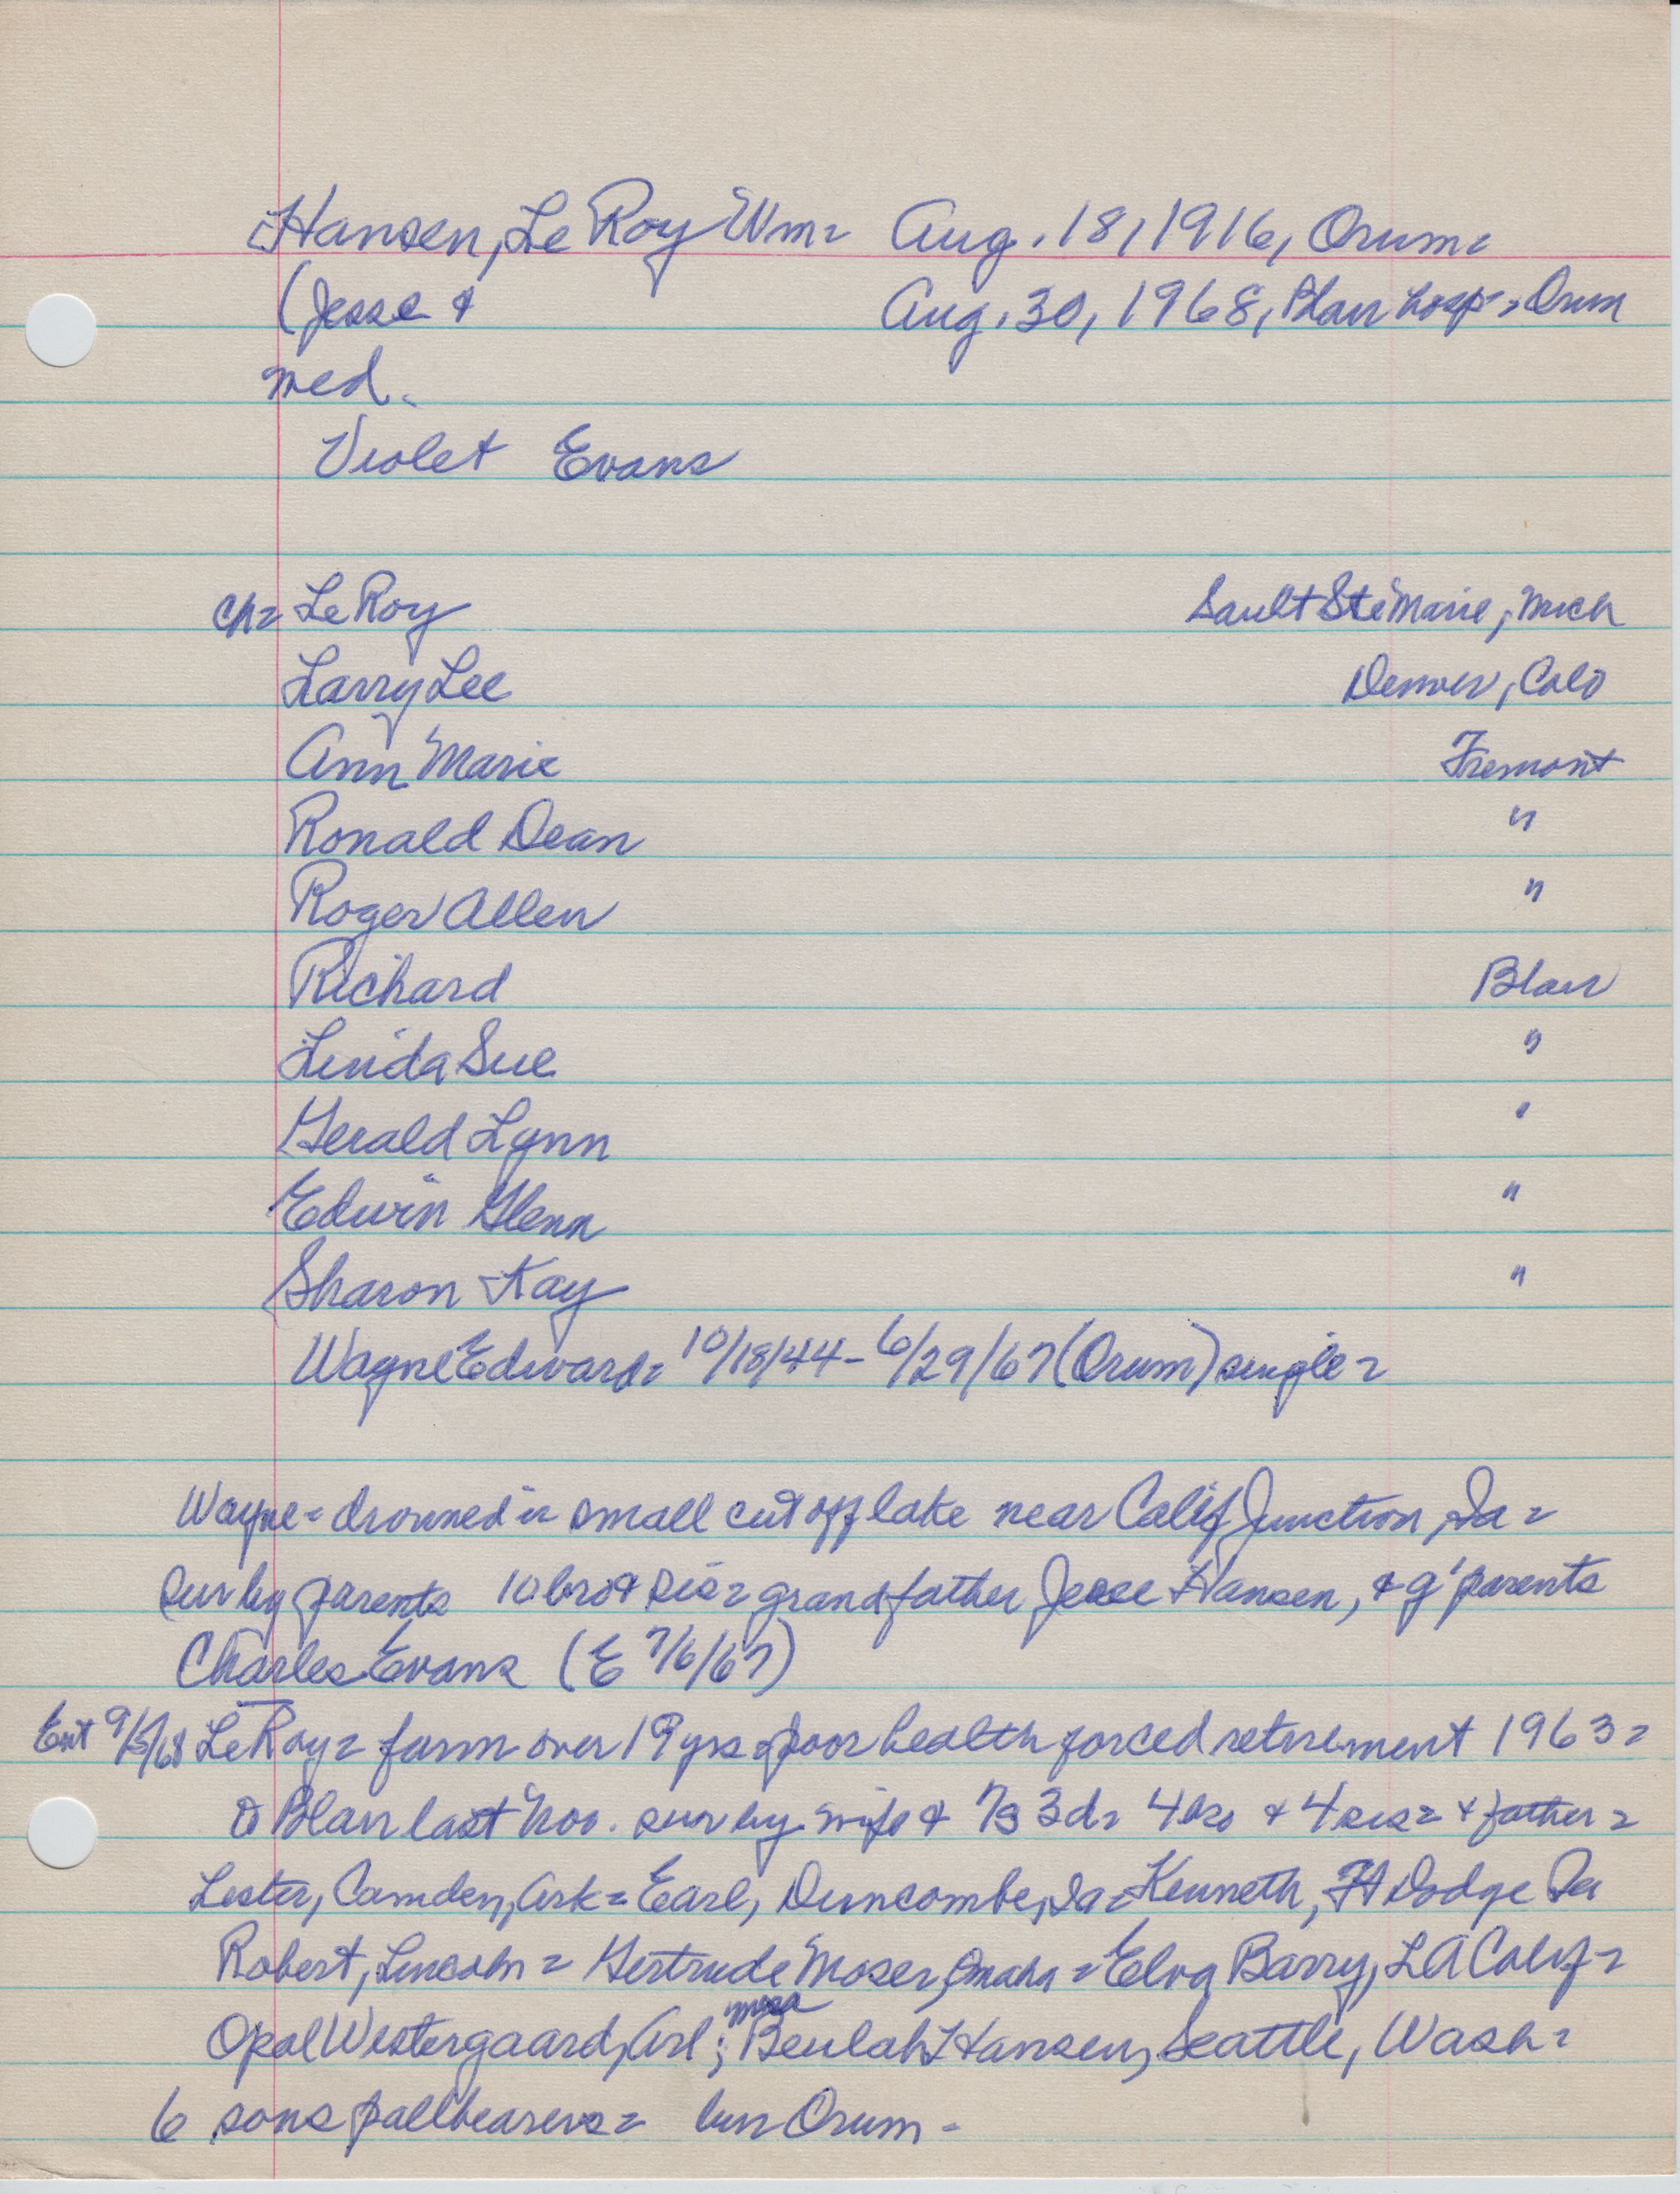 Hansen, Le Roy Wm= Aug. 18, 1916, Orum=
(Jesse & Aug. 30, 1968, Blair hosp=, Orum
med.
Violet Evans
ch= LeRoy Sault Ste Marie, Mich
Larry Lee Denver, Colo
Ann Marie Fremont
Ronald Dean "
Roger Allen "
Richard Blair
Linda Sue "
Gerald Lynn "
Edwin Glenn "
Sharon Kay "
Wayne Edward= 10/18/44 - 6/29/67 (Orum) single=
Wayne= drowned in small cut off lake near Calif Junction, Ia=
sur by parents 10 bro & sis= grandfather Jesse Hansen, & g'parents
Charles Evans (E 7/6/67)
Ent 9/5/68 LeRoy= farm over 19 yrs poor health forced retirement 1963=
to Blair last Nov. sur by wife & 7s 3d= 4 bro & 4 sis= & father=
Lester, Camden, Ark= Earl, Duncombe, Ia= Kenneth, Ft Dodge Ia
Robert, Lincoln= Gertrude Moser, Omaha= Elva Barry, LA Calif=
Opal Westergaard, Arl; Beulah Hansen, Seattle, Wash=
6 sons pallbearers= bur Orum-